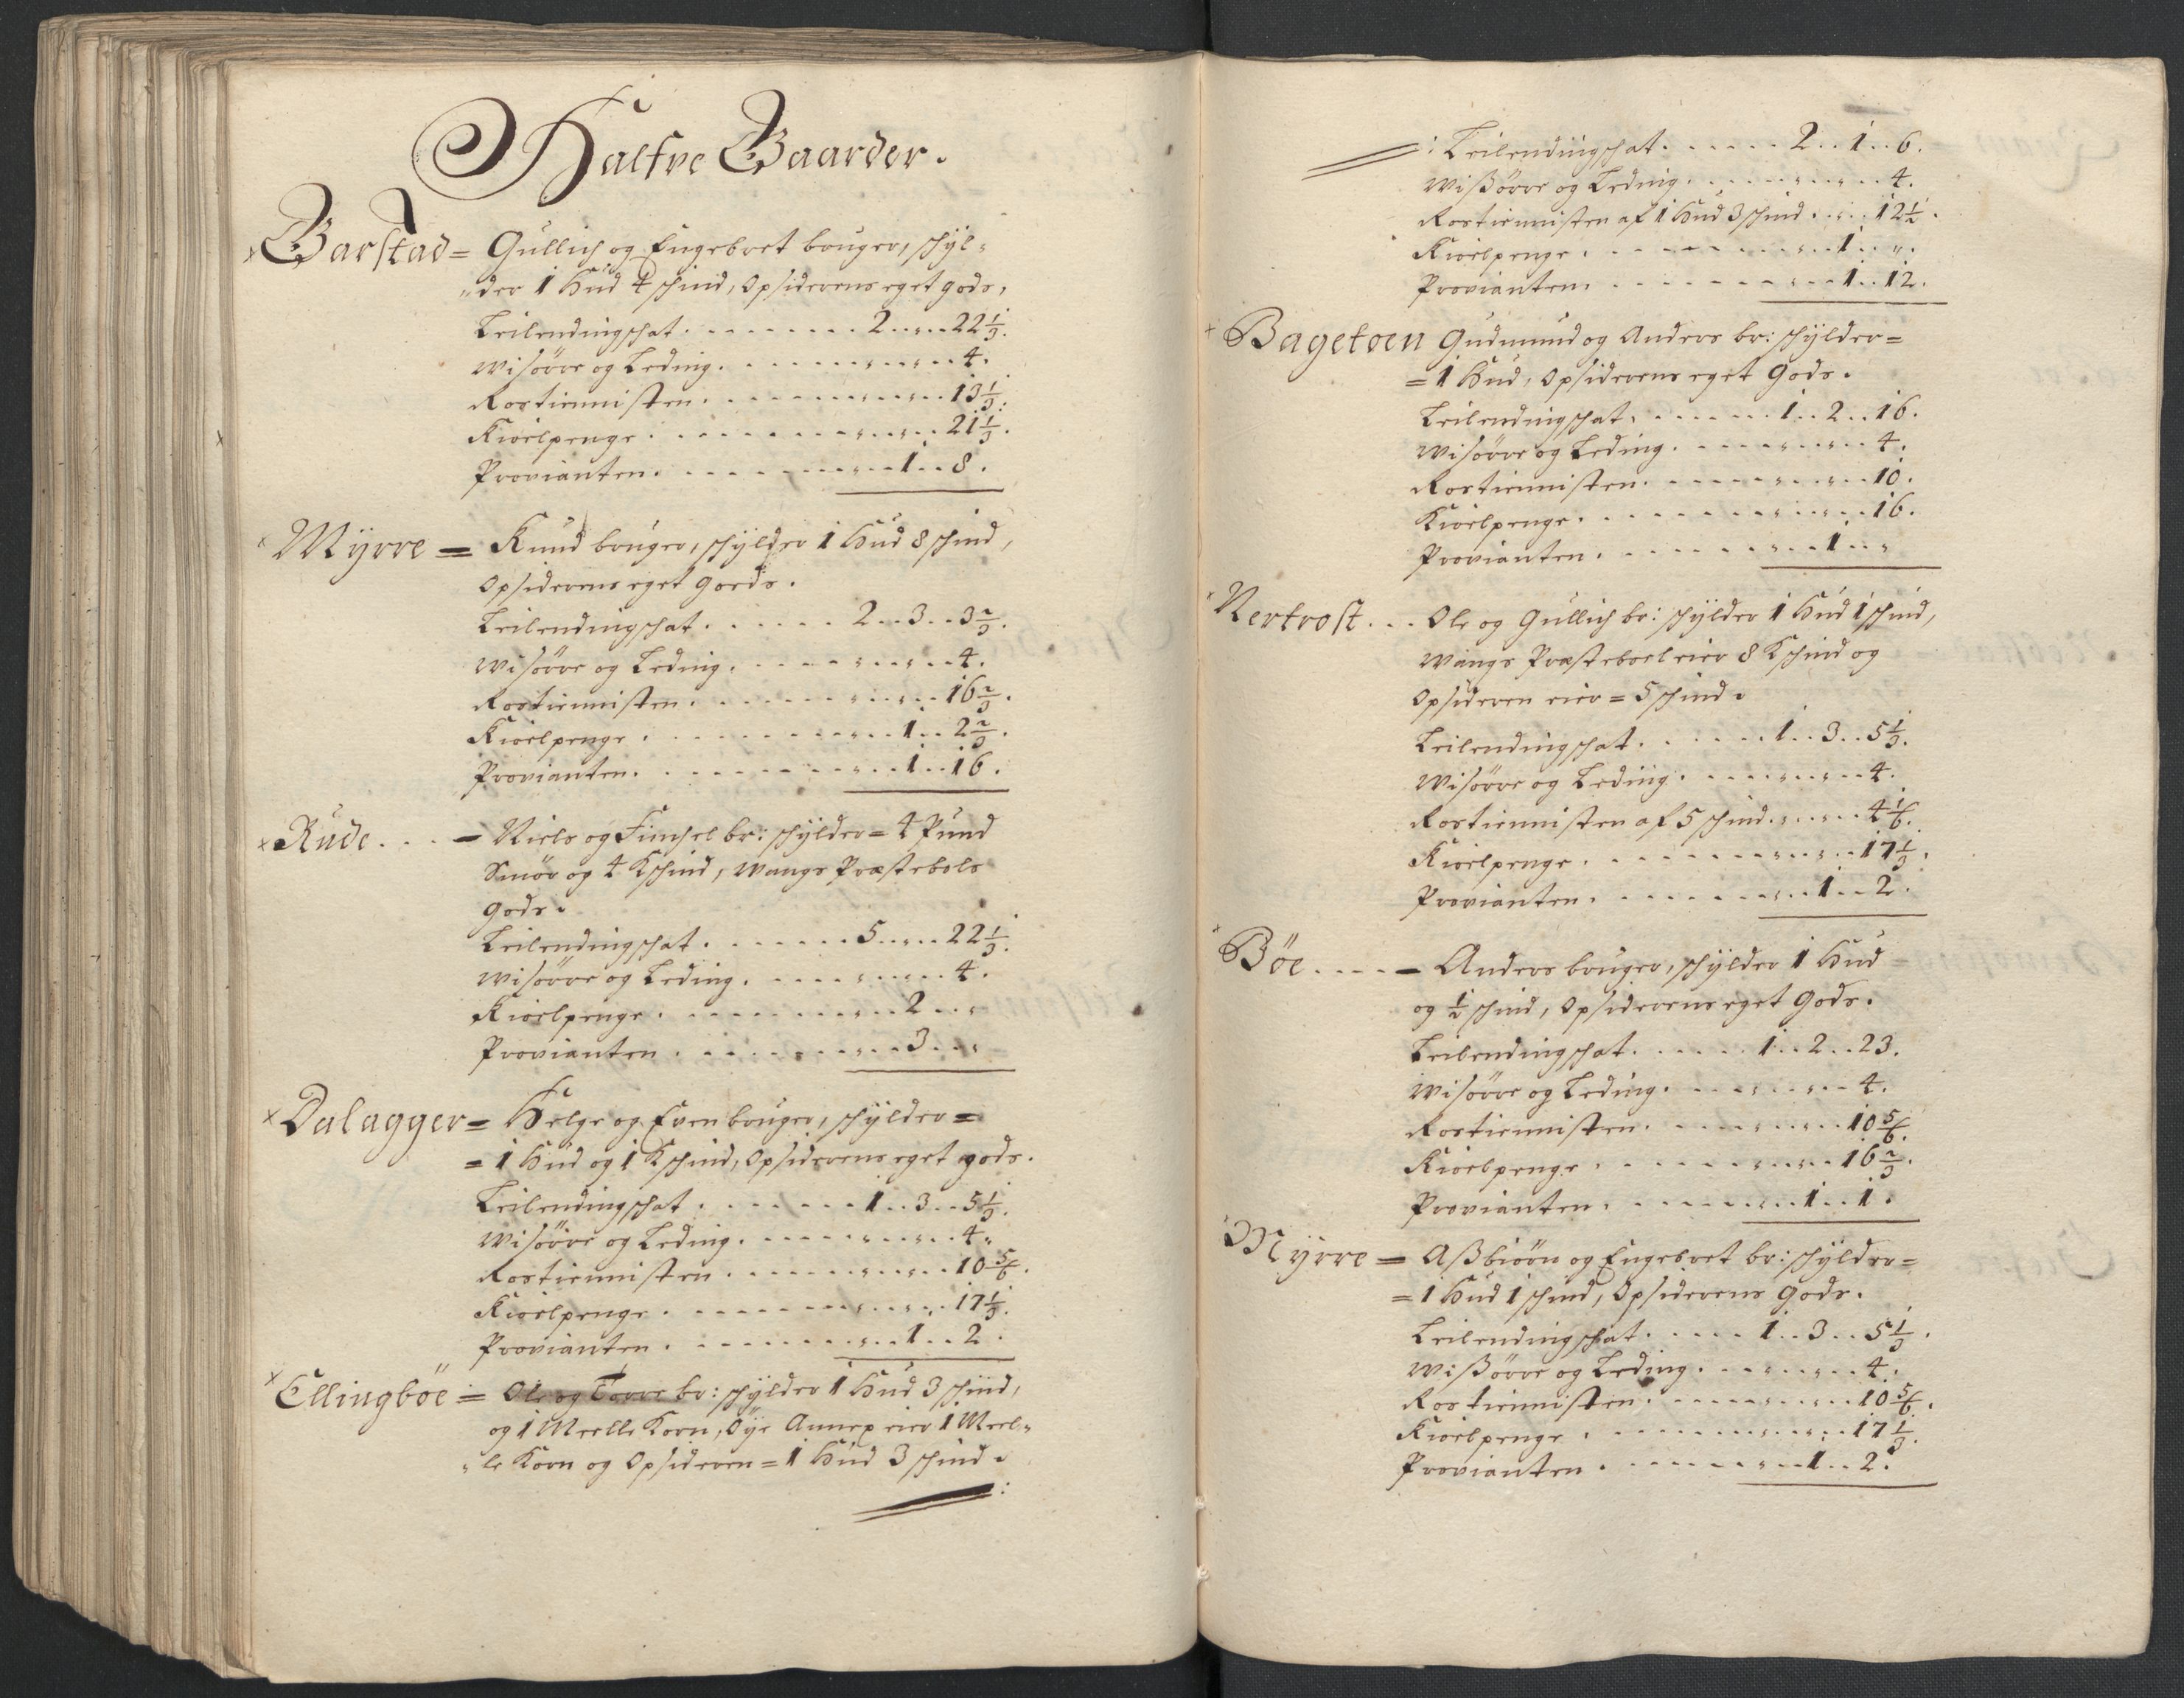 Halfve Gaarder.
Barstad = Gullich og Engebret bruger, schÿl-
der 1 Hud 4 schind, Opsiderens eget gods,
Leilendingschat . . . . 2 .. „ .. 22 1/3.
Wisørre og Leding . . . . „ .. „ .. 4.
Rostiennisten . . . . „ .. „ .. 13 1/3.
Kioelpenge . . . . „ .. „ .. 21 1/3.
Provianten . . . . „ .. 1 .. 8.
Mÿrre = Knud bruger, schÿlder 1 Hud 8 schind,
Opsiderens eget Goeds.
Leilendingschat . . . . 2 .. 3 .. 3 2/3.
Wisørre og Leding . . . . „ .. „ .. 4.
Rostiennisten . . . . „ .. „ .. 16 2/3.
Kioelpenge . . . . „ .. 1 .. 2 2/3.
Provianten . . . . „ .. 1 .. 16.
Rude . . . = Niels og br: schÿlder = 4 Pund
Smør og 4 Kschind, Wangs Præstebols
Gods.
Leilendingschat . . . . 5 .. „ .. 22 1/3.
Wisørre og Leding . . . . „ .. „ .. 4.
Kioelpenge . . . . „ .. 2 .. „
Provianten . . . . „ .. 3 .. „
Dalagger = Helge og Even bruger, schÿlder =
= 1 Hud og 1 Kschind, Opsiderens eget gods.
Leilendingschat . . . . 1 .. 3 .. 5 1/3.
Wisørre og Leding . . . . „ .. „ .. 4.
Rostiennisten . . . . „ .. „ .. 10 5/6.
Kioelpenge . . . . „ .. „ .. 17 1/3.
Provianten . . . . „ .. 1 .. 2.
Ellingbøe = Ole og Torre br: schÿlder 1 Hud 3 schind,
og 1 Meelle Korn, Øÿe Annex eier 1 Meel-
le Korn og Opsideren = 1 Hud 3 schind.
Leilendingschat . . . . 2 .. 1 .. 6.
Wißørre og Leding . . . . „ .. „ .. 4.
Rostiennisten af 1 Hud 3 schind . . „ .. 12 1/2.
Kioelpenge . . . . „ .. 1 .. „.
Provianten . . . . „ .. 1 .. 12.
Bagetoen Gudmund og Anders br: schÿlder =
= 1 Hud, Opsiderens eget Gods.
Leilendingschat . . . . 1 .. 2 .. 16.
Wisørre og Leding . . . . „ .. „ .. 4.
Rostiennisten . . . . „ .. „ .. 10.
Kioelpenge . . . . „ .. „ .. 16.
Provianten . . . . „ .. 1 .. „
Nertrost . . . Ole og Gullich br: schÿlder 1 Hud 1 schind,
Wangs Præsteboel eier 8 Kschind og
Opsideren eier = 5 schind.
Leilendingschat . . . . 1 .. 3 .. 5 1/3.
Wisørre og Leding . . . . „ .. „ .. 4.
Rostiennisten af 5 schind . . „ .. „ .. 4 1/6.
Kioelpenge . . . . „ .. „ .. 17 1/3.
Provianten . . . . „ .. 1 .. 2.
Bøe . . . = Anders bruger, schÿlder 1 Hud
og 1/2 schind, Opsiderens eget Gods.
Leilendingschat . . . . 1 .. 2 .. 23.
Wisørre og Leding . . . . „ .. „ .. 4.
Rostiennisten . . . . „ .. „ .. 10 5/6.
Kioelpenge . . . . „ .. „ .. 16 2/3.
Provianten . . . . „ .. 1 .. 1.
Mÿrre = Aßbiørn og Engebret br: schÿlder =
= 1 Hud 1 schind, Opsiderens Gods.
Leilendingschat . . . . 1 .. 3 .. 5 1/3.
Wißørre og Leding . . . . „ .. „ .. 4.
Rostiennisten . . . . „ .. „ .. 10 5/6.
Kioelpenge . . . . „ .. „ .. 17 1/3.
Provianten . . . . „ .. 1 .. 2.